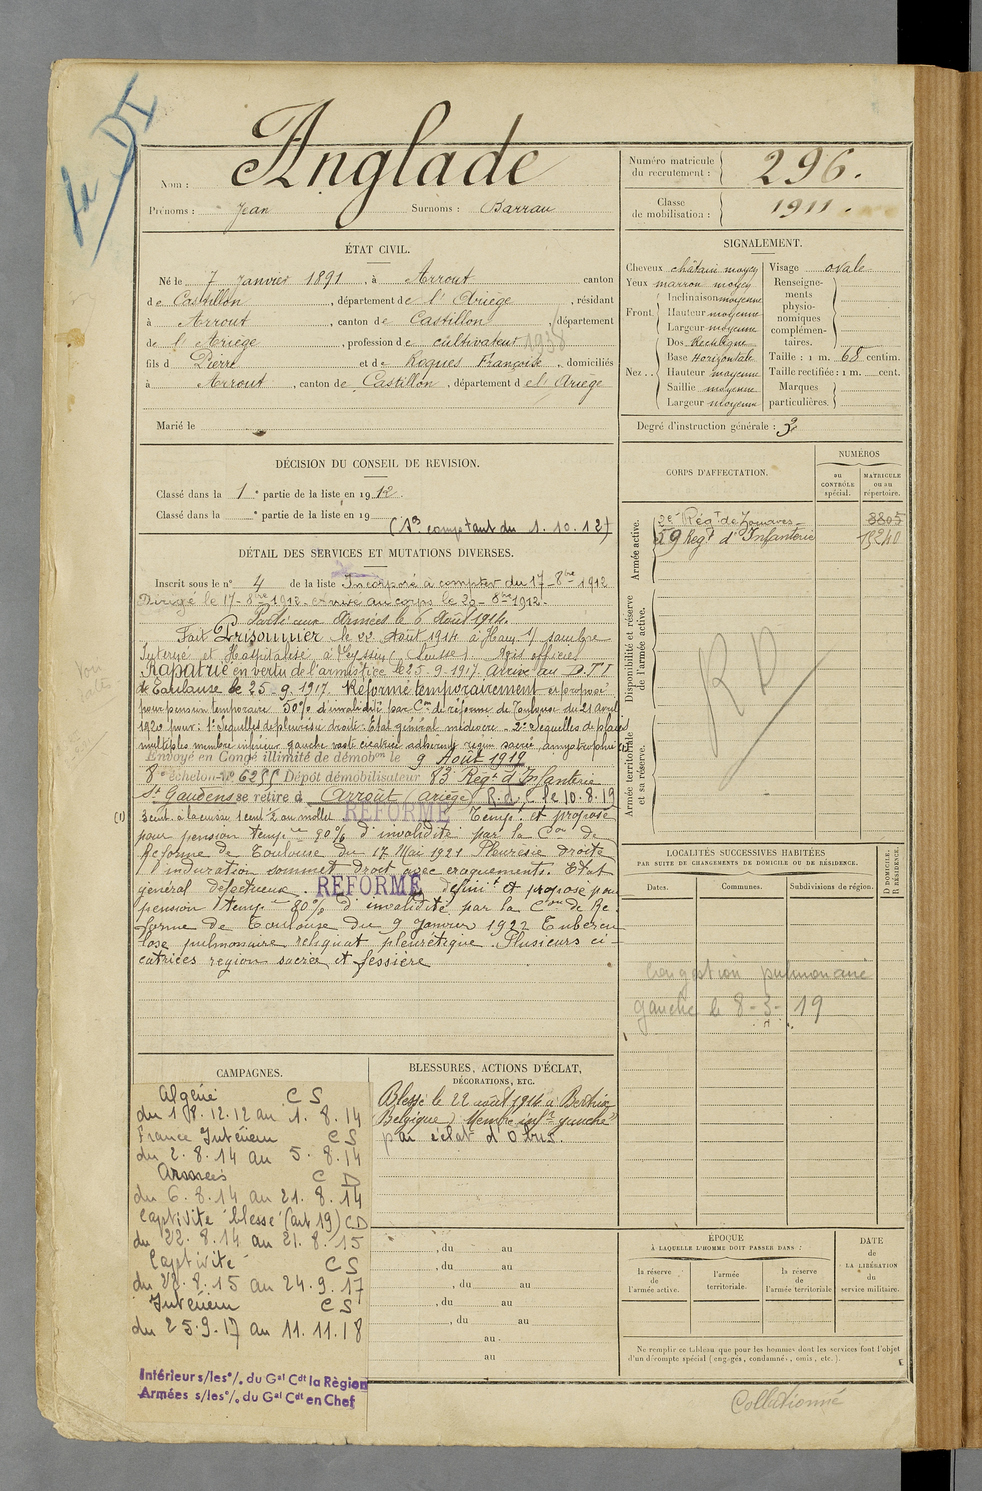 Nom : Anglade
Prénoms : Jean Surnoms : Barrau
Numéro matricule du recrutement : 296.
Classe de mobilisation : 1911.
ÉTAT CIVIL.
Né le 7 Janvier 1891, à Arrout canton
de Castillon, département de l'Ariège, résidant
à Arrout, canton de Castillon, département
de l'Ariège, profession de cultivateur 1938
fils d Pierre et de Roques Françoise, domiciliés
à Arrout, canton de Castillon, département de l'Ariège
Marié le
SIGNALEMENT.
Cheveux châtain moyen
Yeux marron moyen
Front. Inclinaison moyenne
Hauteur moyenne
Largeur moyenne
Nez. . Dos Rectiligne
Base Horizontale
Hauteur moyenne
Saillie moyenne
Largeur moyenne
Visage ovale
Renseigne-
ments
physio-
nomiques
complémen-
taires.
Taille : 1 m. 68 centim.
Taille rectifiée : 1 m. cent.
Marques
particulières.
Degré d'instruction générale : 3
DÉCISION DU CONSEIL DE REVISION.
Classé dans la 1e partie de la liste en 1912.
Classé dans la e partie de la liste en 19
(Son comptant du 1.10.12)
DÉTAIL DES SERVICES ET MUTATIONS DIVERSES.
Inscrit sous le n° 4 de la liste Incorporé à compter du 17-8bre 1912
Dirigé le 17-8bre 1912. Arrivé au corps le 20-8bre 1912.
Parti aux Armées le 6 Août 1914.
Fait Prisonnier le 22 Août 1914 à Ham s/ sambre
Interné et Hospitalisé à Leyssin (Suisse). Avis officiel
Rapatrié en vertu de l'armistice le 25-9-1917 arrivé au D.T.I
de Toulouse le 25-9-1917. Réformé temporairement et proposé
pour pension temporaire 50% d'invalidité par Con de réforme de Toulouse du 21 avril
1920 pour: 1° Séquelles de pleurésie droite. Etat général médiocre. 2° Séquelles de plaies
multiples membre inférieur gauche vaste cicatrice adhérente région sacrée amyotrophie (1)
Envoyé en Congé illimité de démobon le 9 Août 1919
8e échelon n° 6255 Dépôt démobilisateur 83 Régt d'Infanterie
St Gaudens se retire à Arrout (Ariège) R.d.C. le 10.8.19
(1) 3 cent. à la cuisse 1 cent ½ au mollet RÉFORMÉ Temp. et proposé
pour pension tempre 90% d'invalidité par la Con de
Réforme de Toulouse du 17 Mai 1921 Pleurésie droite
induration sommet droit avec craquements. Etat
général défectueux. RÉFORMÉ définit et proposé pour
pension temp. 80% d'invalidité par la Con de Ré-
forme de Toulouse du 9 Janvier 1922 Tubercu
lose pulmonaire reliquat pleurétique. Plusieurs ci-
catrices région sacrée et fessière
CORPS D'AFFECTATION.
NUMÉROS
au CONTRÔLE spécial.
MATRICULE ou au répertoire.
Armée active.
2e Régt de Zouaves 8805
59 Regt d'Infanterie 15240
Disponibilité et réserve de l'armée active.
RD
Armée territoriale et sa réserve.
LOCALITÉS SUCCESSIVES HABITÉES
PAR SUITE DE CHANGEMENTS DE DOMICILE OU DE RÉSIDENCE.
Dates. Communes. Subdivisions de région.
D DOMICILE. R RÉSIDENCE.
Congestion pulmonaire
gauche le 8-3-19
CAMPAGNES.
Algérie C S
du 18.12.12 au 1.8.14
France Intérieur C S
du 2.8.14 au 5.8.14
Armées C D
du 6.8.14 au 21.8.14
Captivité blessé (art 19) CD
du 22.8.14 au 21.8.15
Captivité C S
du 22.8.15 au 24.9.17
Intérieur C S
du 25.9.17 au 11.11.18
Intérieur s/les °/. du Gal Cdt la Région
Armées s/les °/. du Gal Cdt en Chef
BLESSURES, ACTIONS D'ÉCLAT,
DÉCORATIONS, ETC.
Blessé le 22 août 1914 à
(Belgique) Membre infr gauche
par éclat d'Obus.
, du au
, du au
, du au
, du au
, du au
au
au
ÉPOQUE
À LAQUELLE L'HOMME DOIT PASSER DANS :
la réserve de l'armée active.
l'armée territoriale.
la réserve de l'armée territoriale
DATE de LA LIBÉRATION du service militaire.
Ne remplir ce tableau que pour les hommes dont les services font l'objet
d'un décompte spécial (engagés, condamnés, omis, etc.).
Collationné